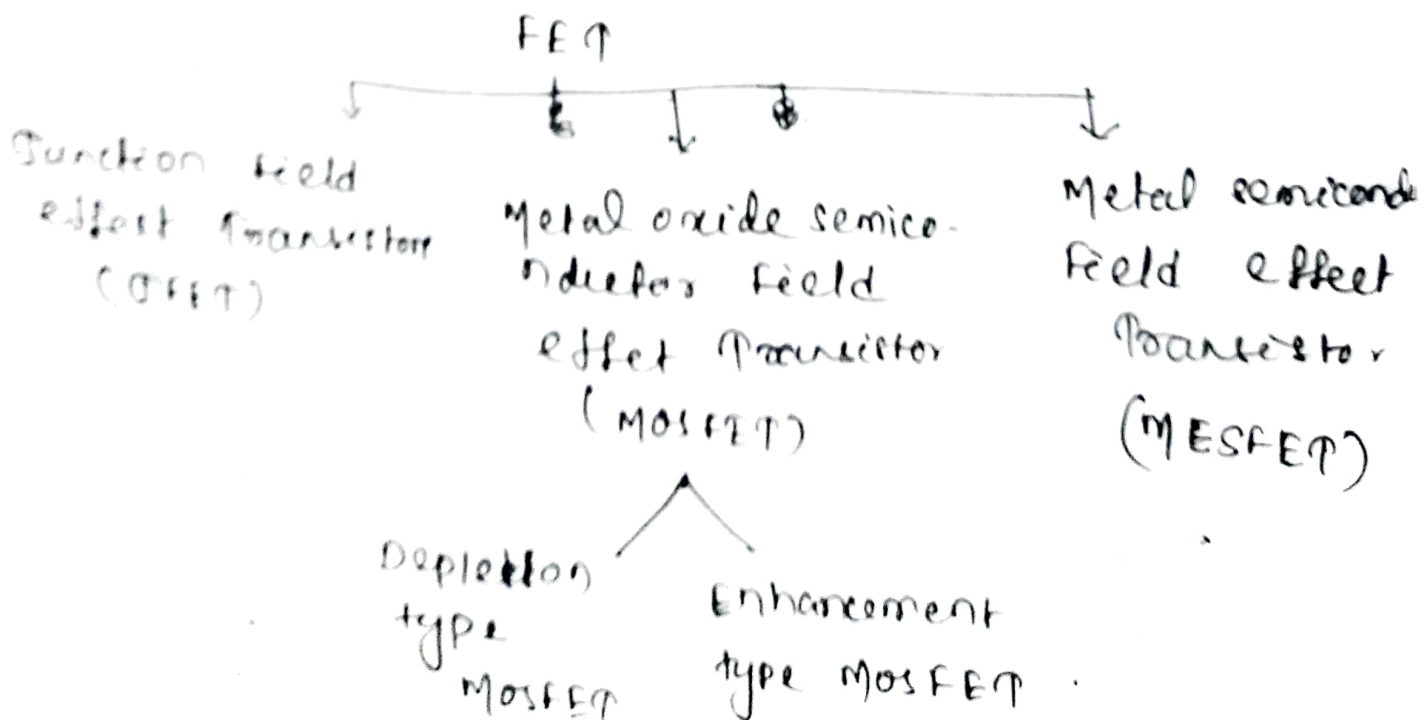 FET
Junction Field
effect Transistore
(JFET)
Metal oxide semico-
nductor Field
effet Transistor
(MOSFET)
Metal semicond
Field effect
Transistor
(MESFET)
Depletion
type
MOSFET
Enhancement
type MOSFET.